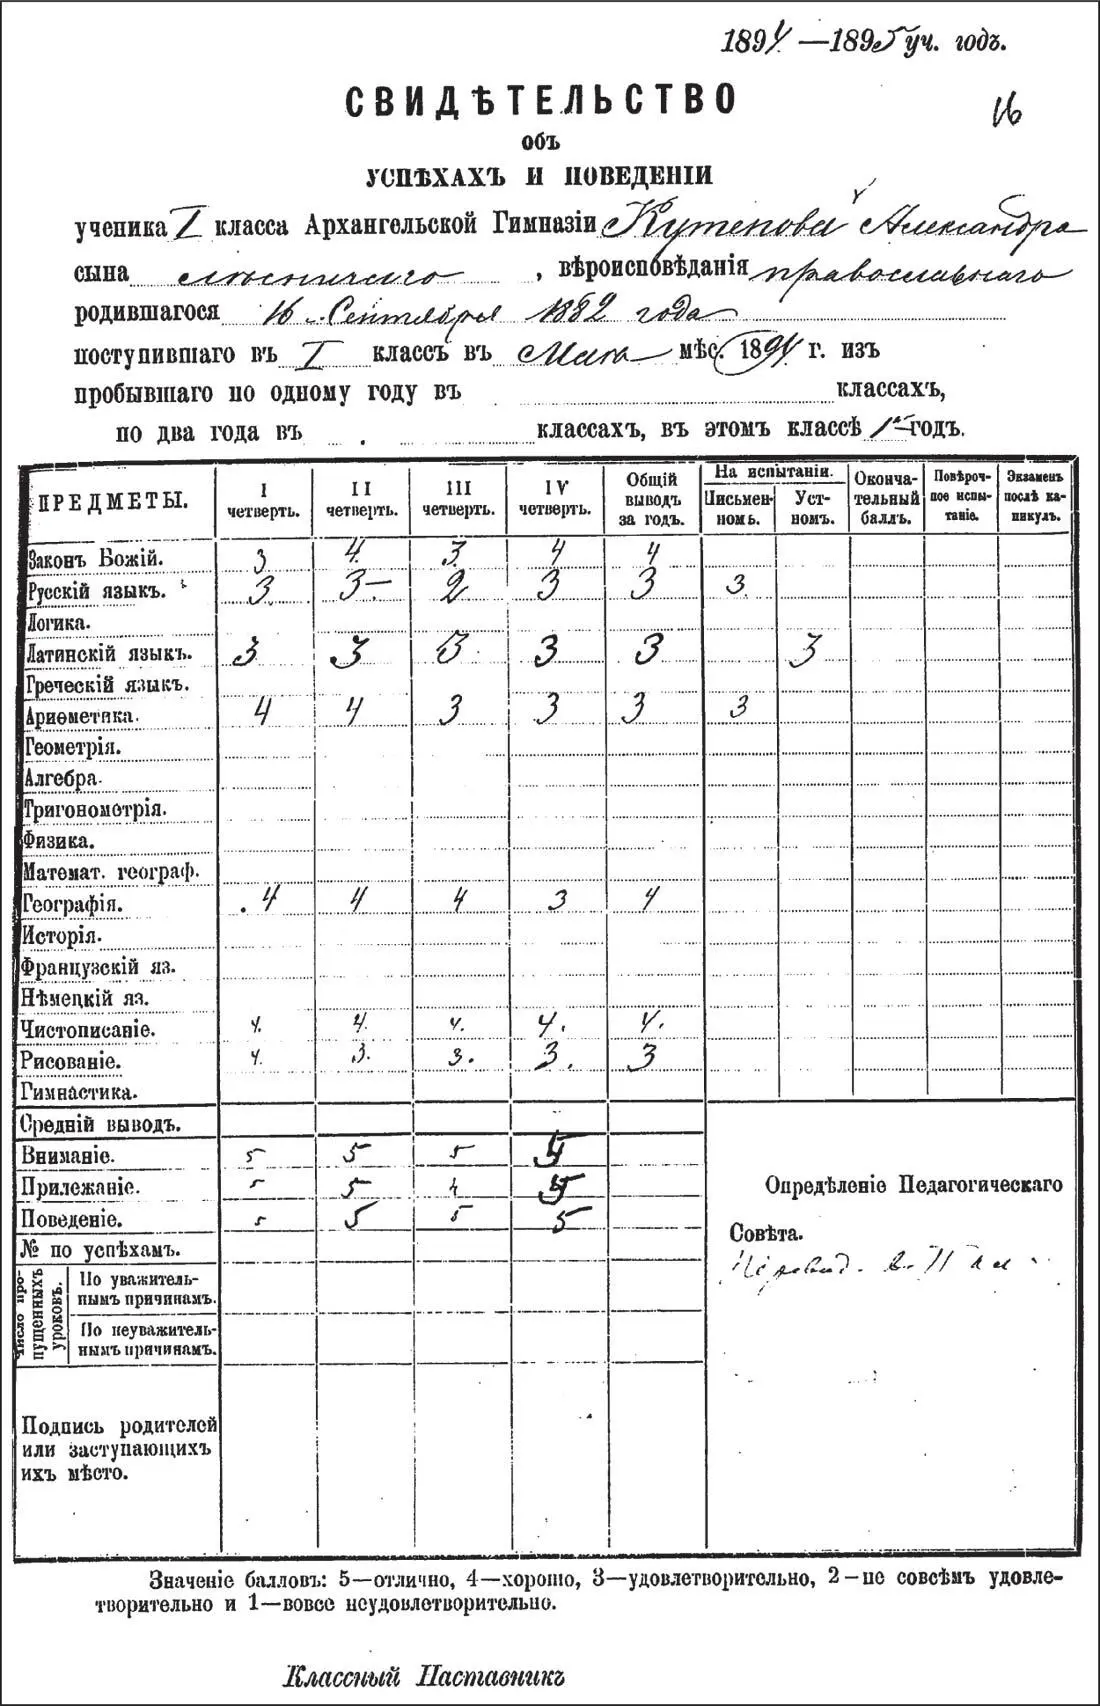 1894—1895 уч. годъ.
16
СВИДѢТЕЛЬСТВО
объ
УСПѢХАХЪ И ПОВЕДЕНІИ
ученика I класса Архангельской Гимназіи Кутепова Александра
сына лѣсничаго, вѣроисповѣданія православнаго
родившагося 16 Сентября 1882 года
поступившаго въ I классъ въ Маѣ мѣс. 1894 г. изъ
пробывшаго по одному году въ классахъ,
по два года въ классахъ, въ этомъ классѣ 1 годъ.
ПРЕДМЕТЫ. I четверть. II четверть. III четверть. IV четверть. Общій выводъ за годъ. На испытаніи. Письмен-номъ. Уст-номъ. Оконча-тельный баллъ. Повѣроч-ное испы-таніе. Экзаменъ послѣ ка-никулъ.
Законъ Божій. 3 4 3 4 4
Русскій языкъ. 3 3– 2 3 3 3
Логика.
Латинскій языкъ. 3 3 3 3 3 3
Греческій языкъ.
Ариѳметика. 4 4 3 3 3 3
Геометрія.
Алгебра.
Тригонометрія.
Физика.
Математ. географ.
Географія. 4 4 4 3 4
Исторія.
Французскій яз.
Нѣмецкій яз.
Чистописаніе. 4. 4. 4. 4. 4.
Рисованіе. 4. 3. 3. 3. 3
Гимнастика.
Средній выводъ.
Вниманіе. 5 5 5 5
Прилежаніе. 5 5 4 5
Поведеніе. 5 5 5 5
№ по успѣхамъ.
Число про-пущенныхъ уроковъ.
По уважитель-
нымъ причинамъ.
По неуважитель-
нымъ причинамъ.
Опредѣленіе Педагогическаго
Совѣта.
II кл
Подпись родителей
или заступающихъ
ихъ мѣсто.
Значеніе балловъ: 5—отлично, 4—хорошо, 3—удовлетворительно, 2—не совсѣмъ удовле-
творительно и 1—вовсе неудовлетворительно.
Классный Наставникъ